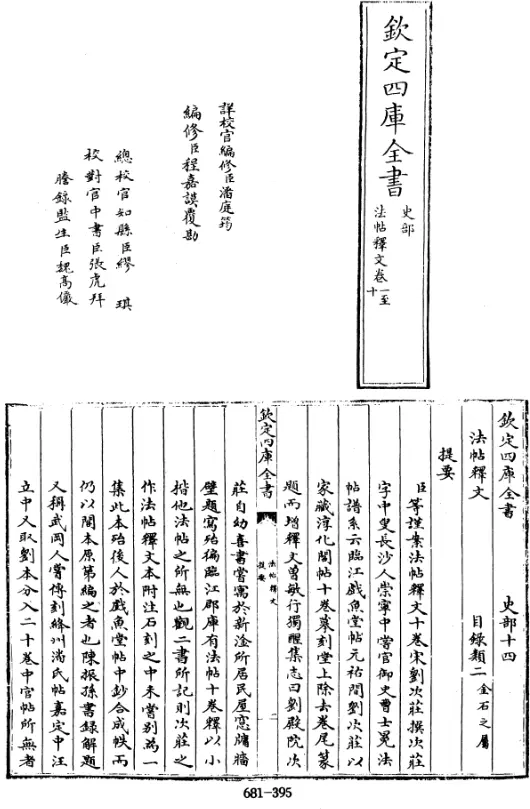 欽定四庫全書
史部
法帖釋文卷一至十
詳校官編修臣潘庭筠
編修臣程嘉謨覆勘
總校官知縣臣繆琪
校對官中書臣張虎拜
謄錄監生臣魏高儀
欽定四庫全書
史部十四
法帖釋文
目錄類二金石之屬
提要
臣等謹案法帖釋文十卷宋劉次莊撰次莊
字中叟長沙人崇寧中嘗官御史曹士冕法
帖譜系云臨江戲魚堂帖元祐間劉次莊以
家藏淳化閣帖十卷摹刻堂上除去卷尾篆
題而增釋文曾敏行獨醒雜志曰劉殿院次
欽定四庫全書
法帖釋文
提要
一
莊自幼喜書嘗寓於新淦所居民屋窓牖牆
壁題寫殆徧臨江郡庫有法帖十卷釋以小
楷他法帖之所無也觀二書所記則次莊之
作法帖釋文本附注石刻之中未嘗別為一
集此本殆後人於戲魚堂帖中鈔合成帙而
仍以閣本原第編之者也陳振孫書錄解題
又稱武岡人嘗傳刻絳州潘氏帖嘉定中汪
立中又取劉本分入二十卷中官帖所無者
681-395